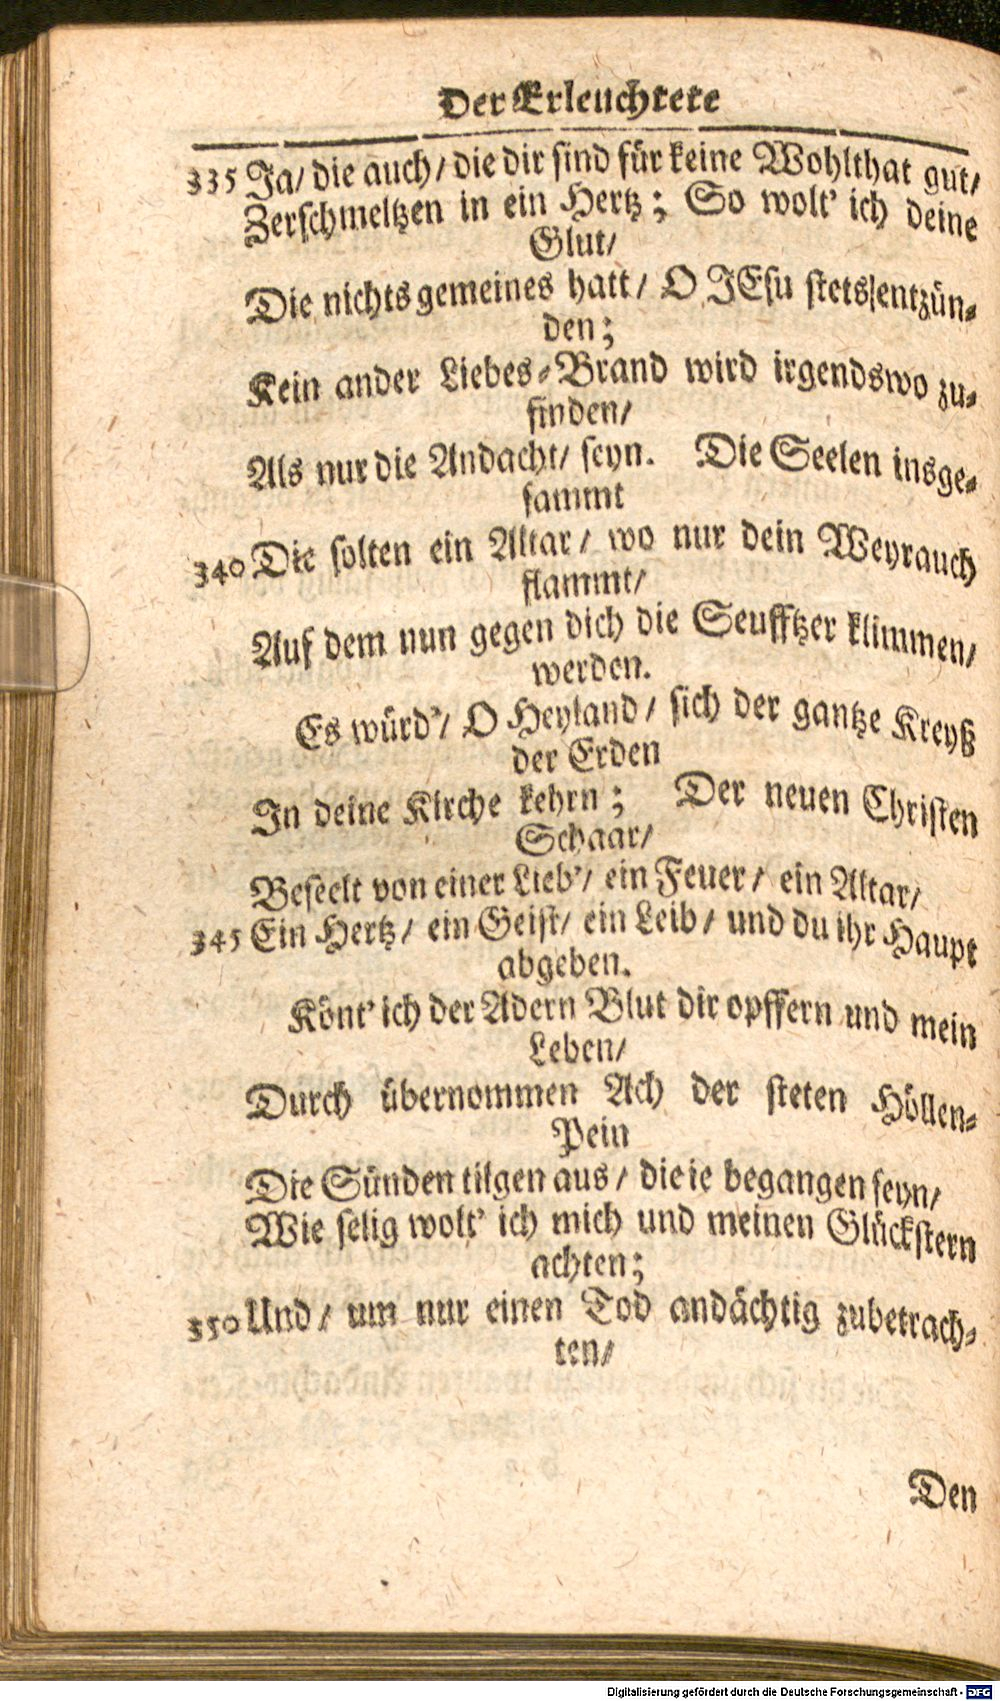 Der Erleuchtete
335 Ja/ die auch/ die dir sind für keine Wohlthat gut/
Zerschmeltzen in ein Hertz; So wolt' ich deine
Glut/
Die nichts gemeines hatt/ O JEsu stets entzün-
den;
Kein ander Liebes-Brand wird irgendswo zu-
finden/
Als nur die Andacht/ seyn. Die Seelen insge-
sammt
340 Die solten ein Altar/ wo nur dein Weyrauch
flammt/
Auf dem nun gegen dich die Seufftzer klimmen/
werden.
Es würd'/ O Heyland/ sich der gantze Kreyß
der Erden
In deine Kirche kehrn; Der neuen Christen
Schaar/
Beseelt von einer Lieb'/ ein Feuer/ ein Altar/
345 Ein Hertz/ ein Geist/ ein Leib/ und du ihr Haupt
abgeben.
Könt' ich der Adern Blut dir opffern und mein
Leben/
Durch übernommen Ach der steten Höllen-
Pein
Die Sünden tilgen aus/ die ie begangen seyn/
Wie selig wolt' ich mich und meinen Glückstern
achten;
350 Und/ um nur einen Tod andächtig zubetrach-
ten/
Den
Digitalisierung gefördert durch die Deutsche Forschungsgemeinschaft - DFG